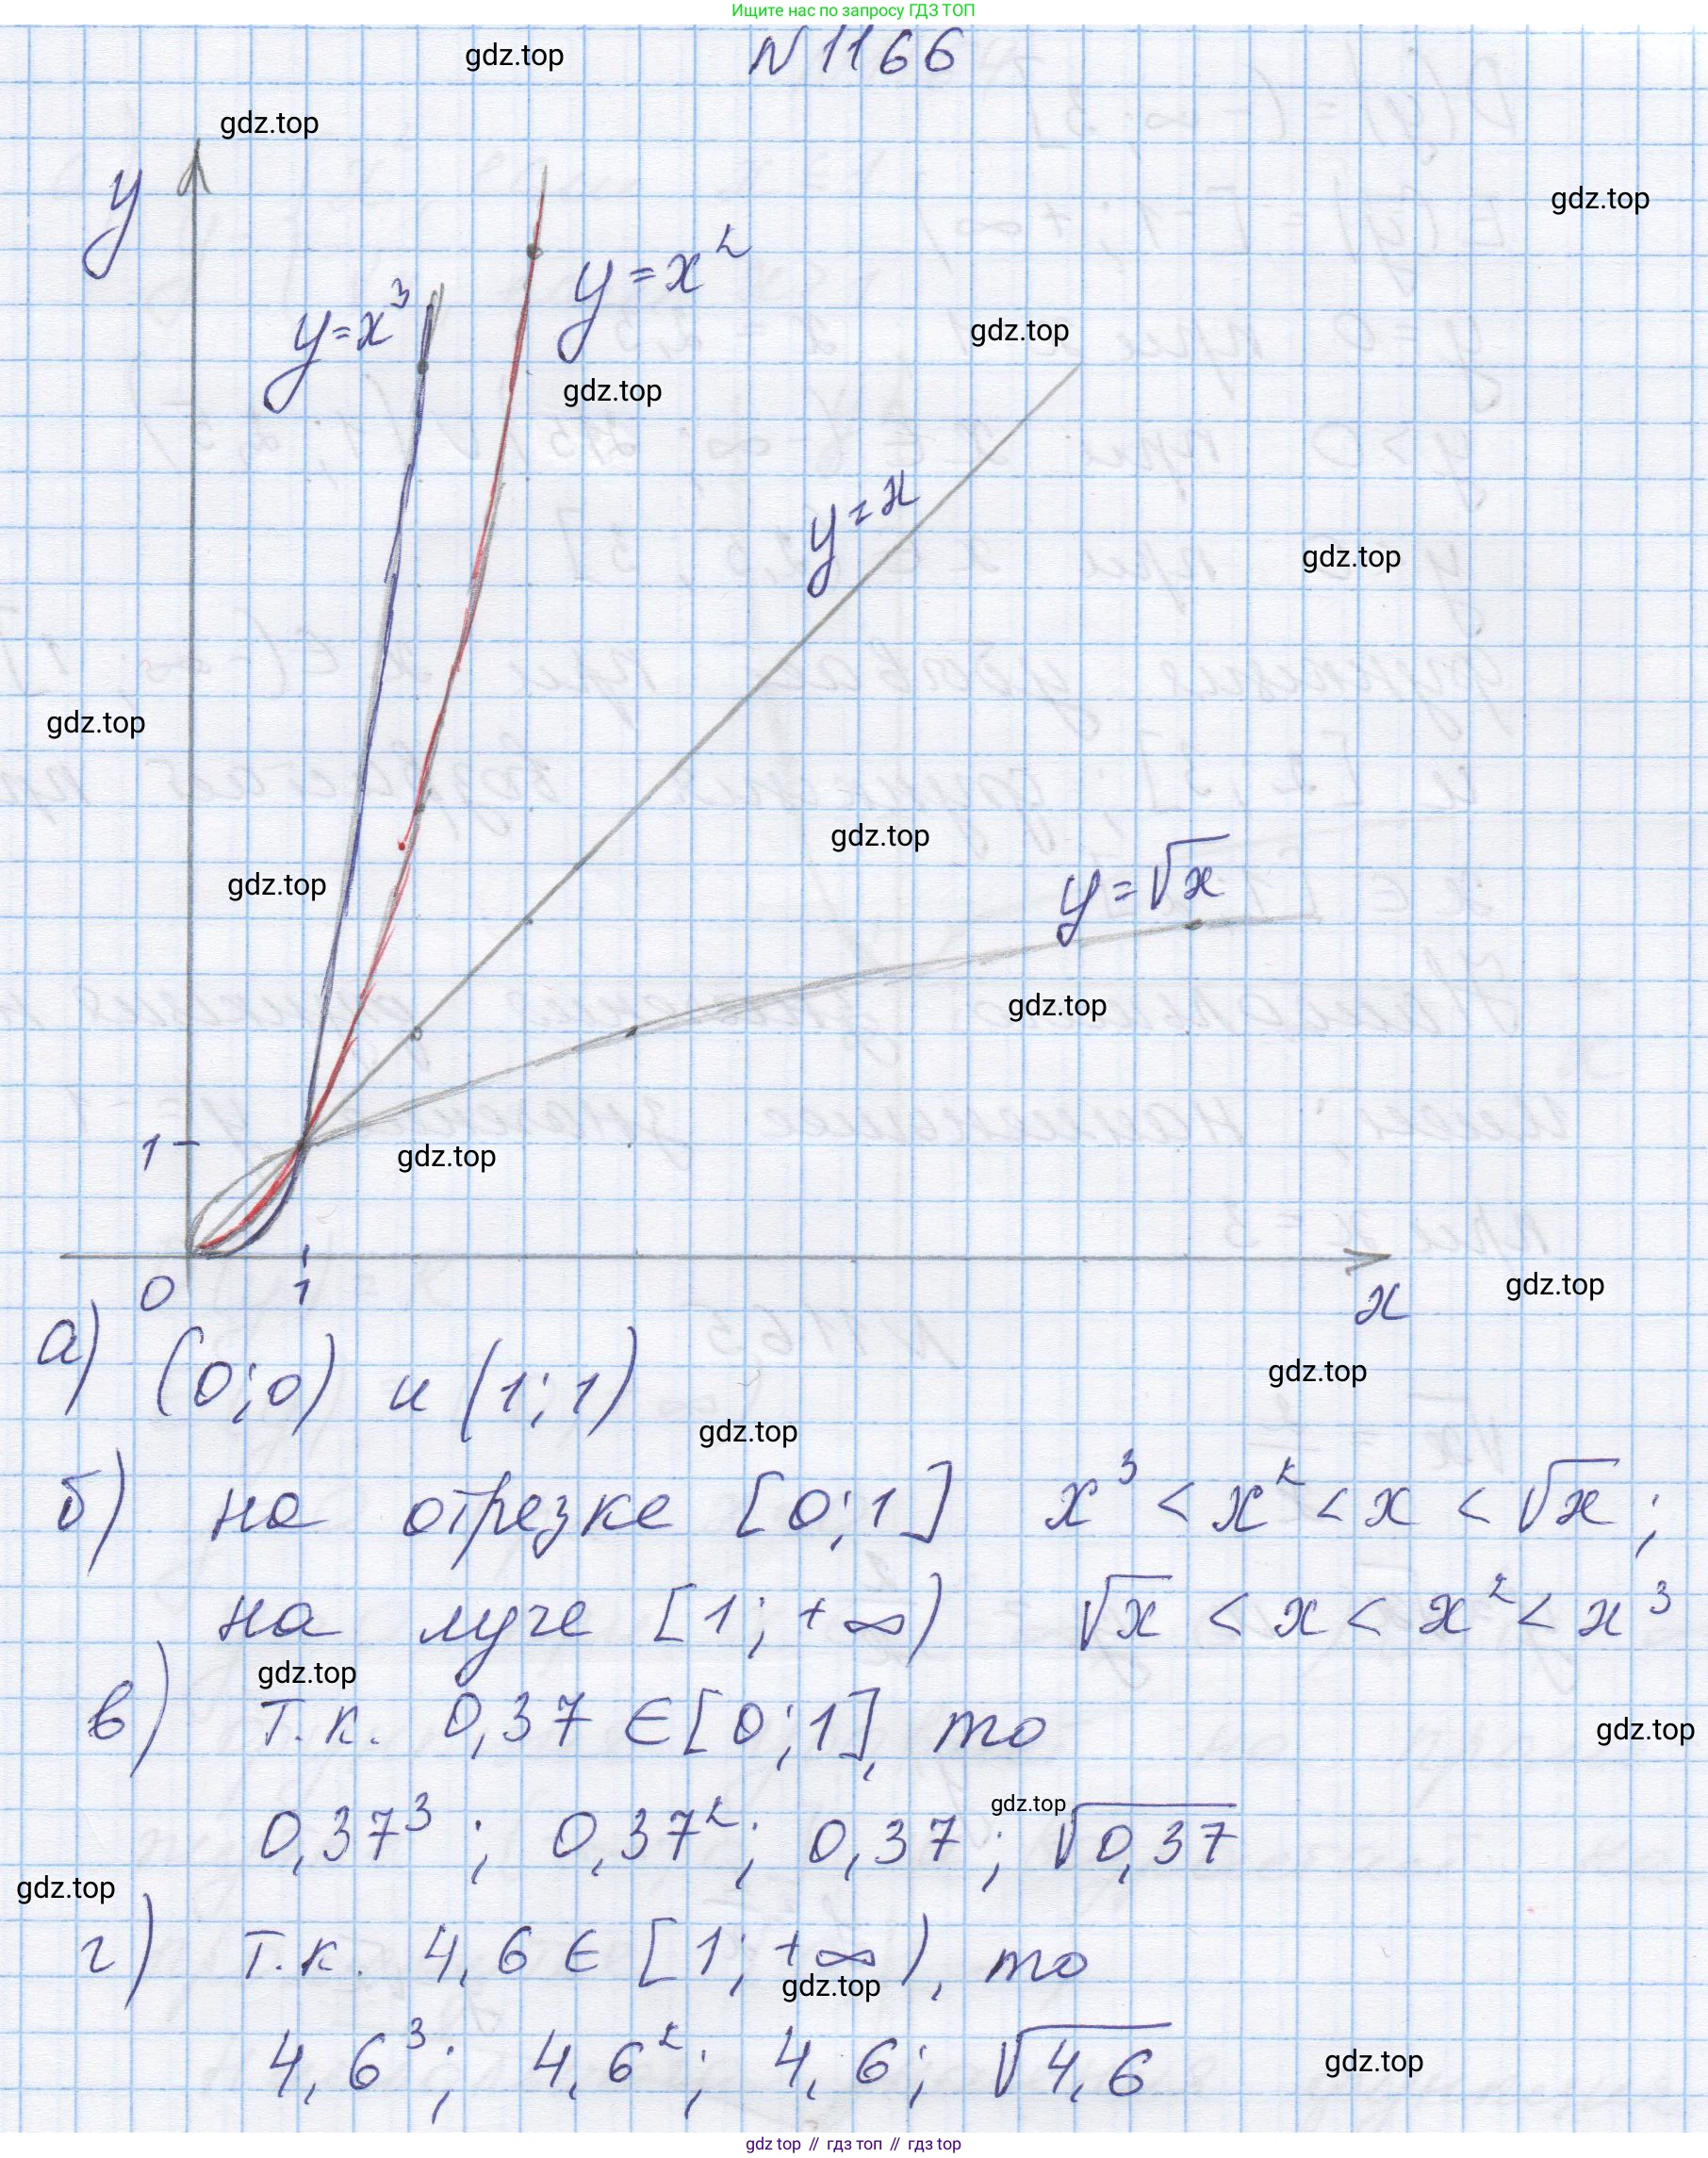 Ищите нас по запросу ГДЗ ТОП
N 1166
gdz.top
gdz.top
gdz.top
y
y=x³
y=x²
gdz.top
gdz.top
y=x
gdz.top
gdz.top
gdz.top
y=√x
gdz.top
gdz.top
1
gdz.top
0
1
x
gdz.top
а) (0;0) и (1;1)
gdz.top
gdz.top
б) на отрезке [0;1] x³ < x² < x < √x;
на луче [1;+∞) √x < x < x² < x³
gdz.top
в) т.к. 0,37 ∈ [0;1], то
gdz.top
gdz.top
0,37³; 0,37²; 0,37; √0,37
gdz.top
г) т.к. 4,6 ∈ [1;+∞), то
gdz.top
4,6³; 4,6²; 4,6; √4,6
gdz.top
gdz top // гдз топ // гдз top